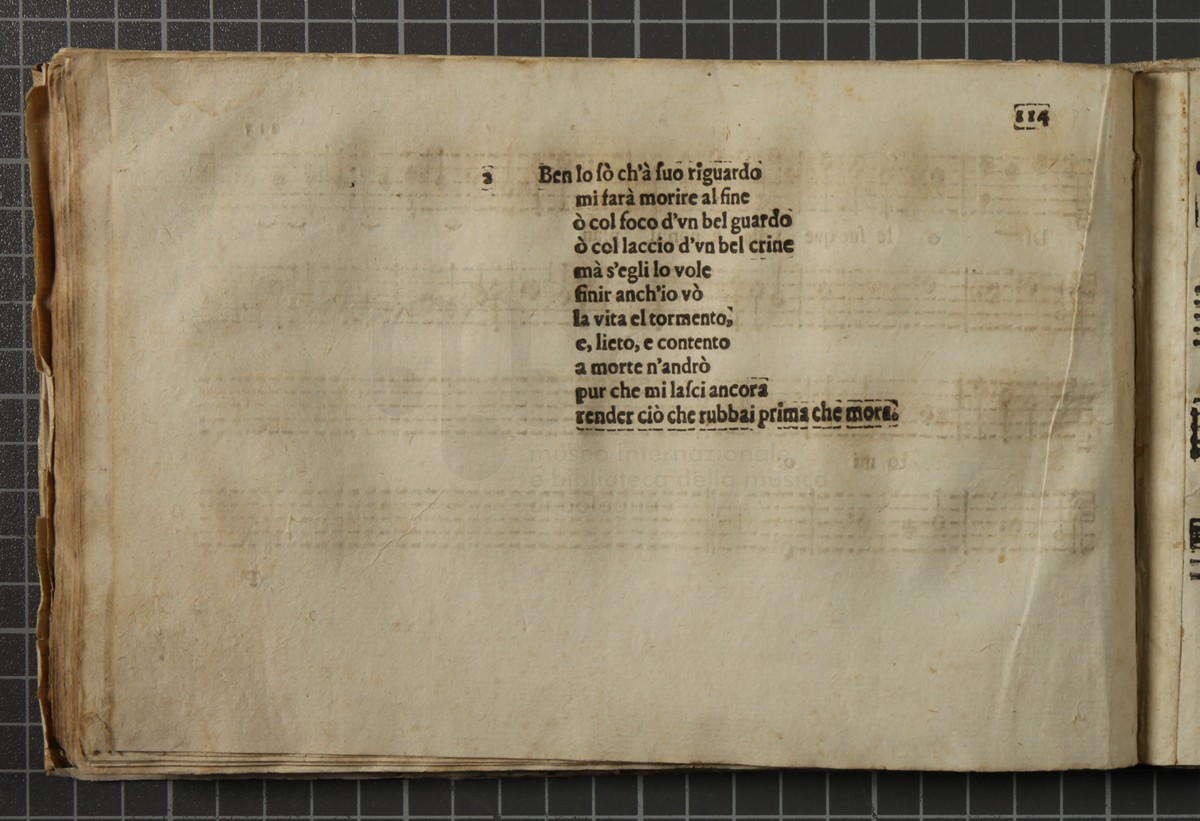 114
2 Ben lo sò ch'à ſuo riguardo
mi farà morire al fine
ò col foco d'vn bel guardo
ò col laccio d'vn bel crine
mà s'egli lo vole
finir anch'io vò
la vita el tormento,
e, lieto, e contento
a morte n'andrò
pur che mi laſci ancora
render ciò che rubbai prima che mora.
museo internazionale
e biblioteca della musica
di bologna